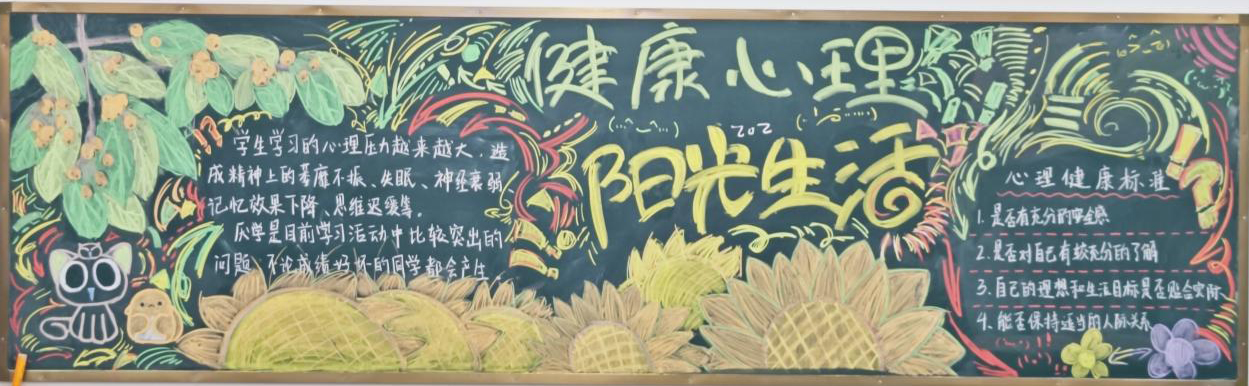 健康心理
阳光生活
202
学生学习的心理压力越来越大，造
成精神上的萎靡不振、失眠、神经衰弱
记忆效果下降、思维迟缓等。
厌学是目前学习活动中比较突出的
问题，不论成绩好坏的同学都会产生。
心理健康标准
1. 是否有充分的安全感
2. 是否对自己有较充分的了解
3. 自己的理想和生活目标是否贴合实际
4. 能否保持适当的人际关系